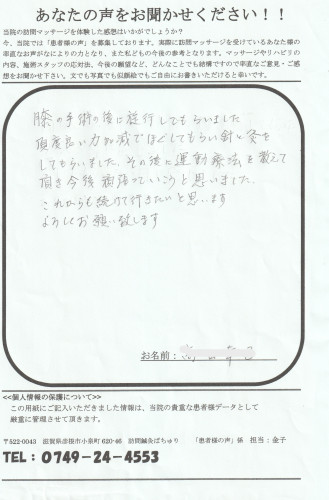 あなたの声をお聞かせください！！
当院の訪問マッサージを体験した感想はいかがでしょうか？
今、当院では「患者様の声」を募集しております。実際に訪問マッサージを受けているあなた様の
率直なお声がなによりの力となり、また私どもの今後の参考となります。マッサージやリハビリの
内容、施術スタッフの応対法、今後の願望など、どんなことでも結構ですので率直なご意見・ご感
想をお聞かせ下さい。文でも写真でも似顔絵でもご自由にお書きいただけると幸いです。
膝の手術の後に施行してもらいました
頂度良い力加減でほぐしてもらい針と灸を
してもらいました。その後に運動療法を教えて
頂き今後頑張っていこうと思いました。
これからも続けて行きたいと思います
よろしくお願い致します
お名前：
<<個人情報の保護について>>
この用紙にご記入いただきました情報は、当院の貴重な患者様データとして
厳重に管理させて頂きます。
〒522-0043 滋賀県彦根市小泉町 620-46 訪問鍼灸ぱちゅり 「患者様の声」係 担当：金子
TEL：0749-24-4553